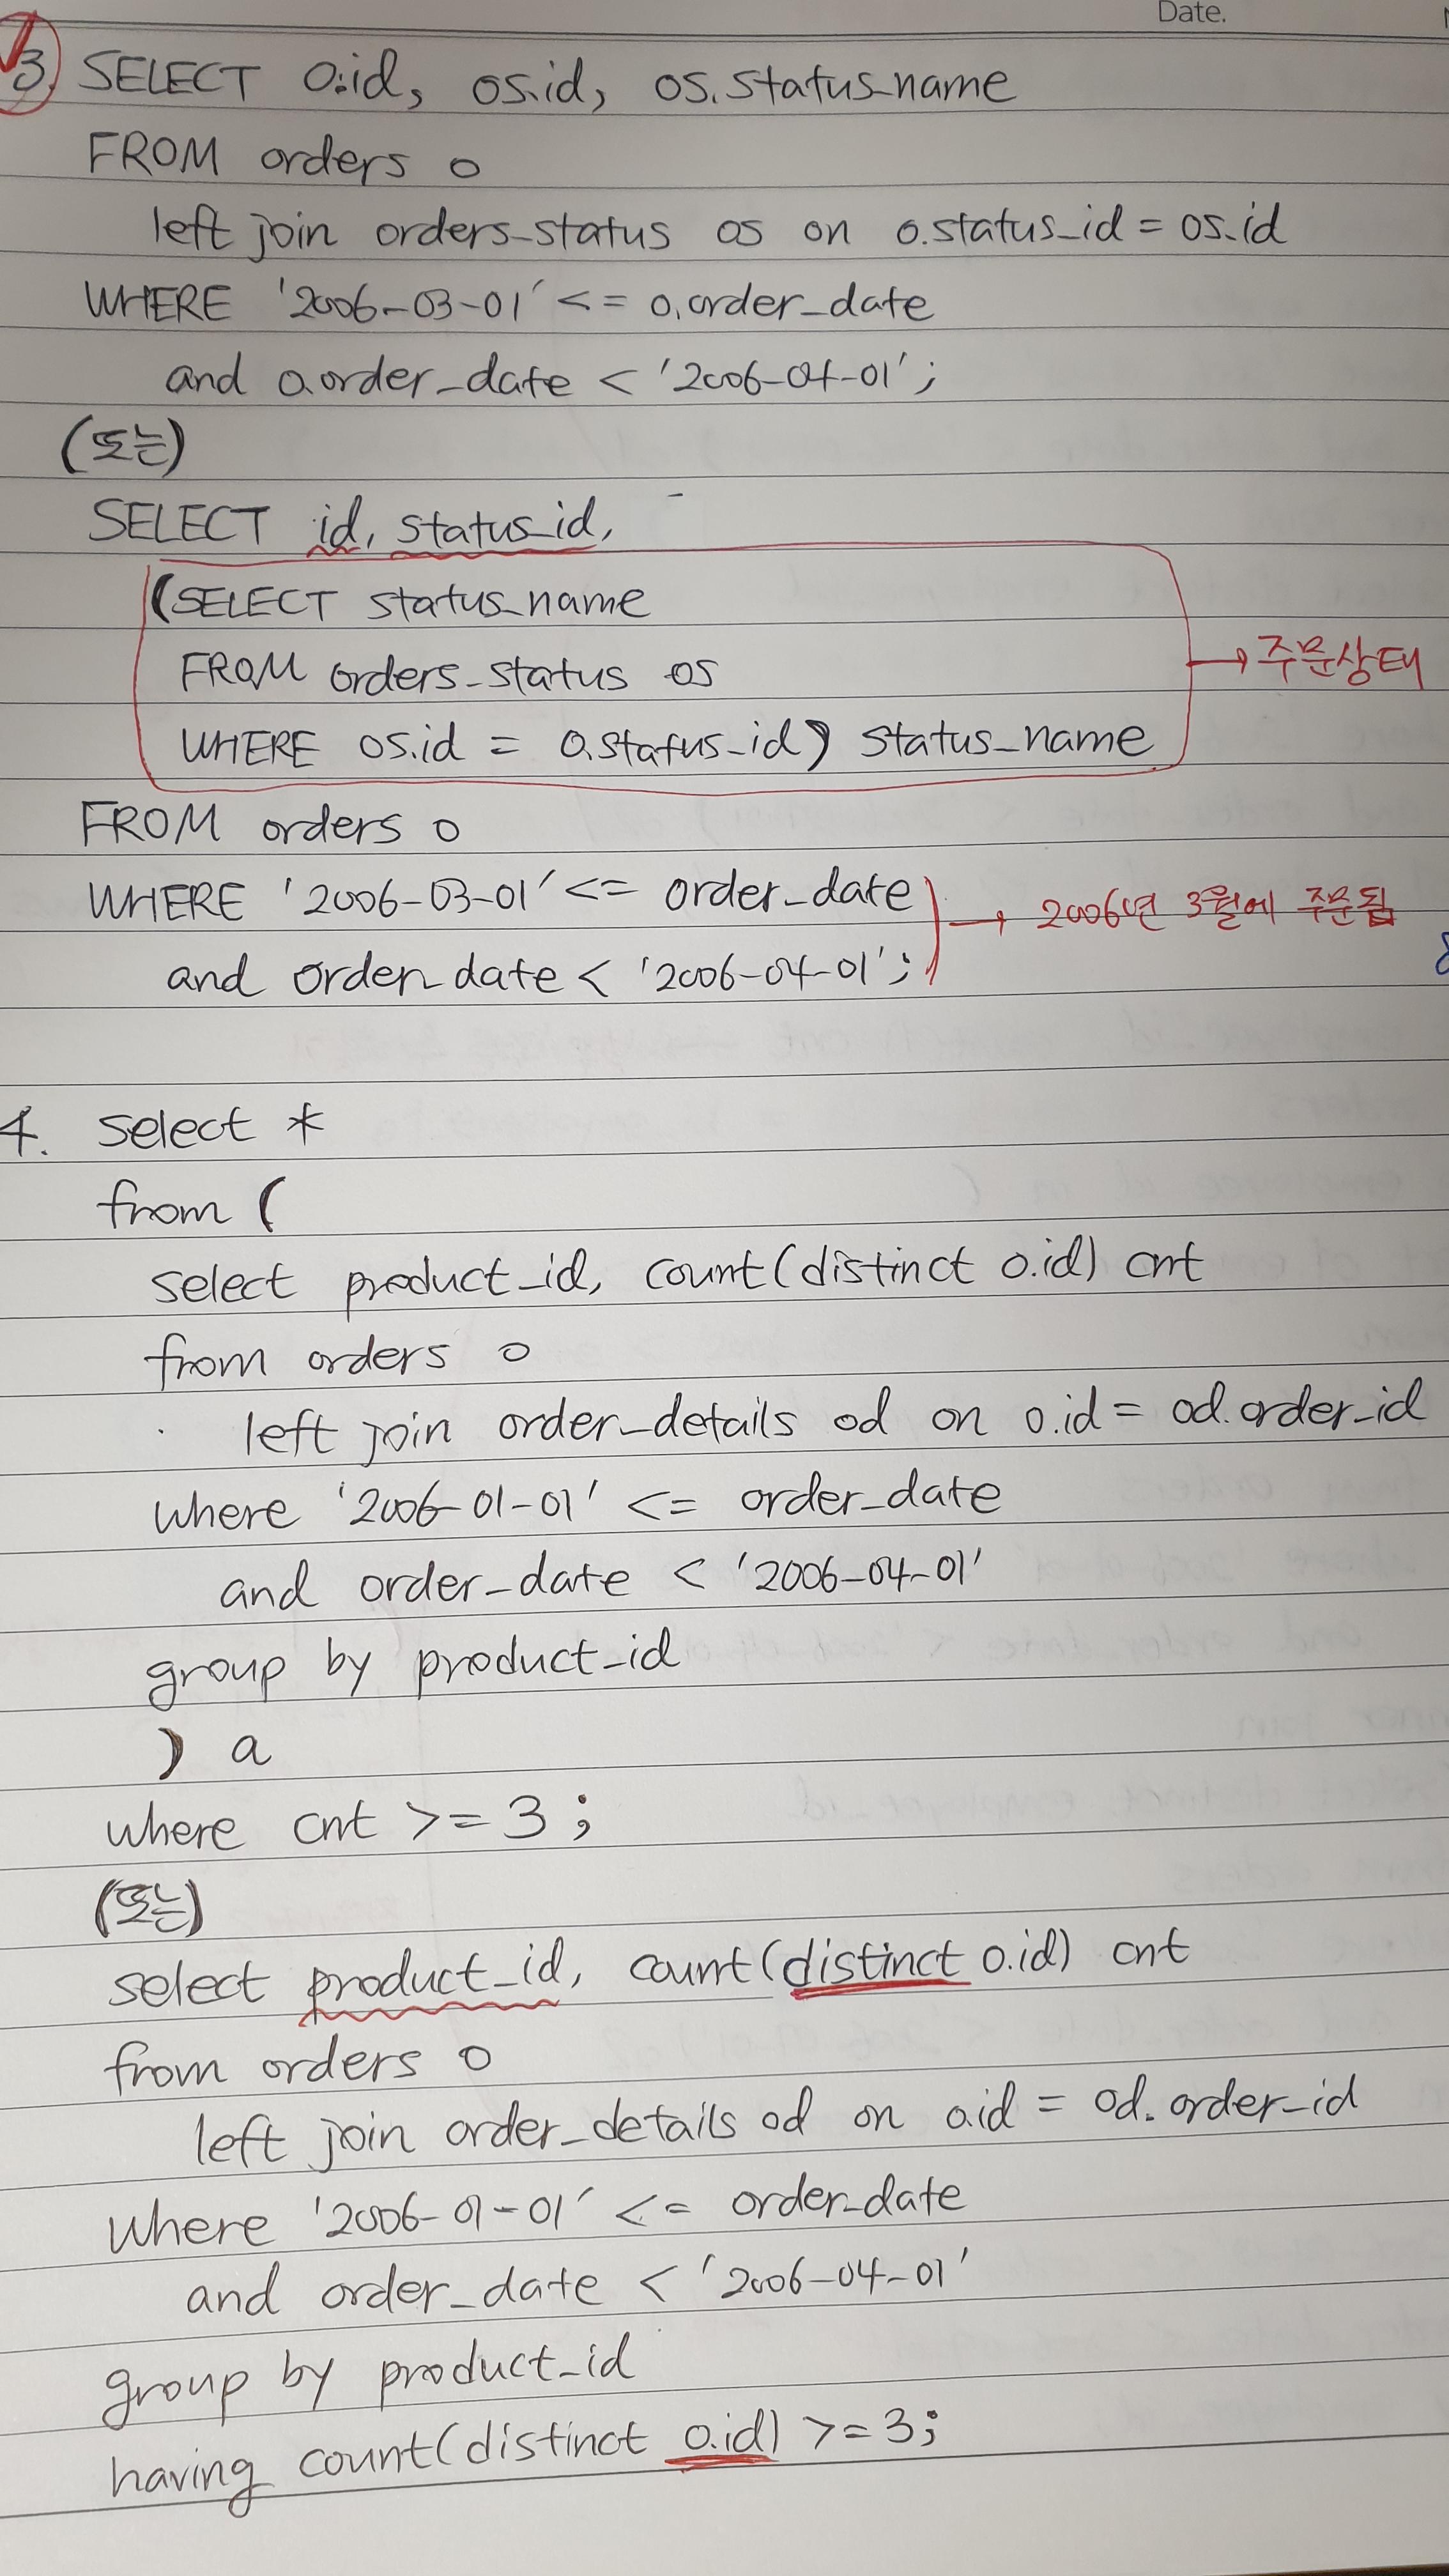 Date.
3. SELECT o.id, os.id, os.status_name
FROM orders o
left join orders_status os on o.status_id = os.id
WHERE '2006-03-01' <= o.order_date
and o.order_date < '2006-04-01';
(또는)
SELECT id, status_id,
(SELECT status_name
FROM orders_status os
→ 주문상태
WHERE os.id = o.status_id) status_name
FROM orders o
WHERE '2006-03-01' <= order_date
→ 2006년 3월에 주문됨
and order_date < '2006-04-01';
4. select *
from (
select product_id, count(distinct o.id) cnt
from orders o
left join order_details od on o.id = od.order_id
where '2006-01-01' <= order_date
and order_date < '2006-04-01'
group by product_id
) a
where cnt >= 3;
(또는)
select product_id, count(distinct o.id) cnt
from orders o
left join order_details od on o.id = od.order_id
where '2006-01-01' <= order_date
and order_date < '2006-04-01'
group by product_id
having count(distinct o.id) >= 3;